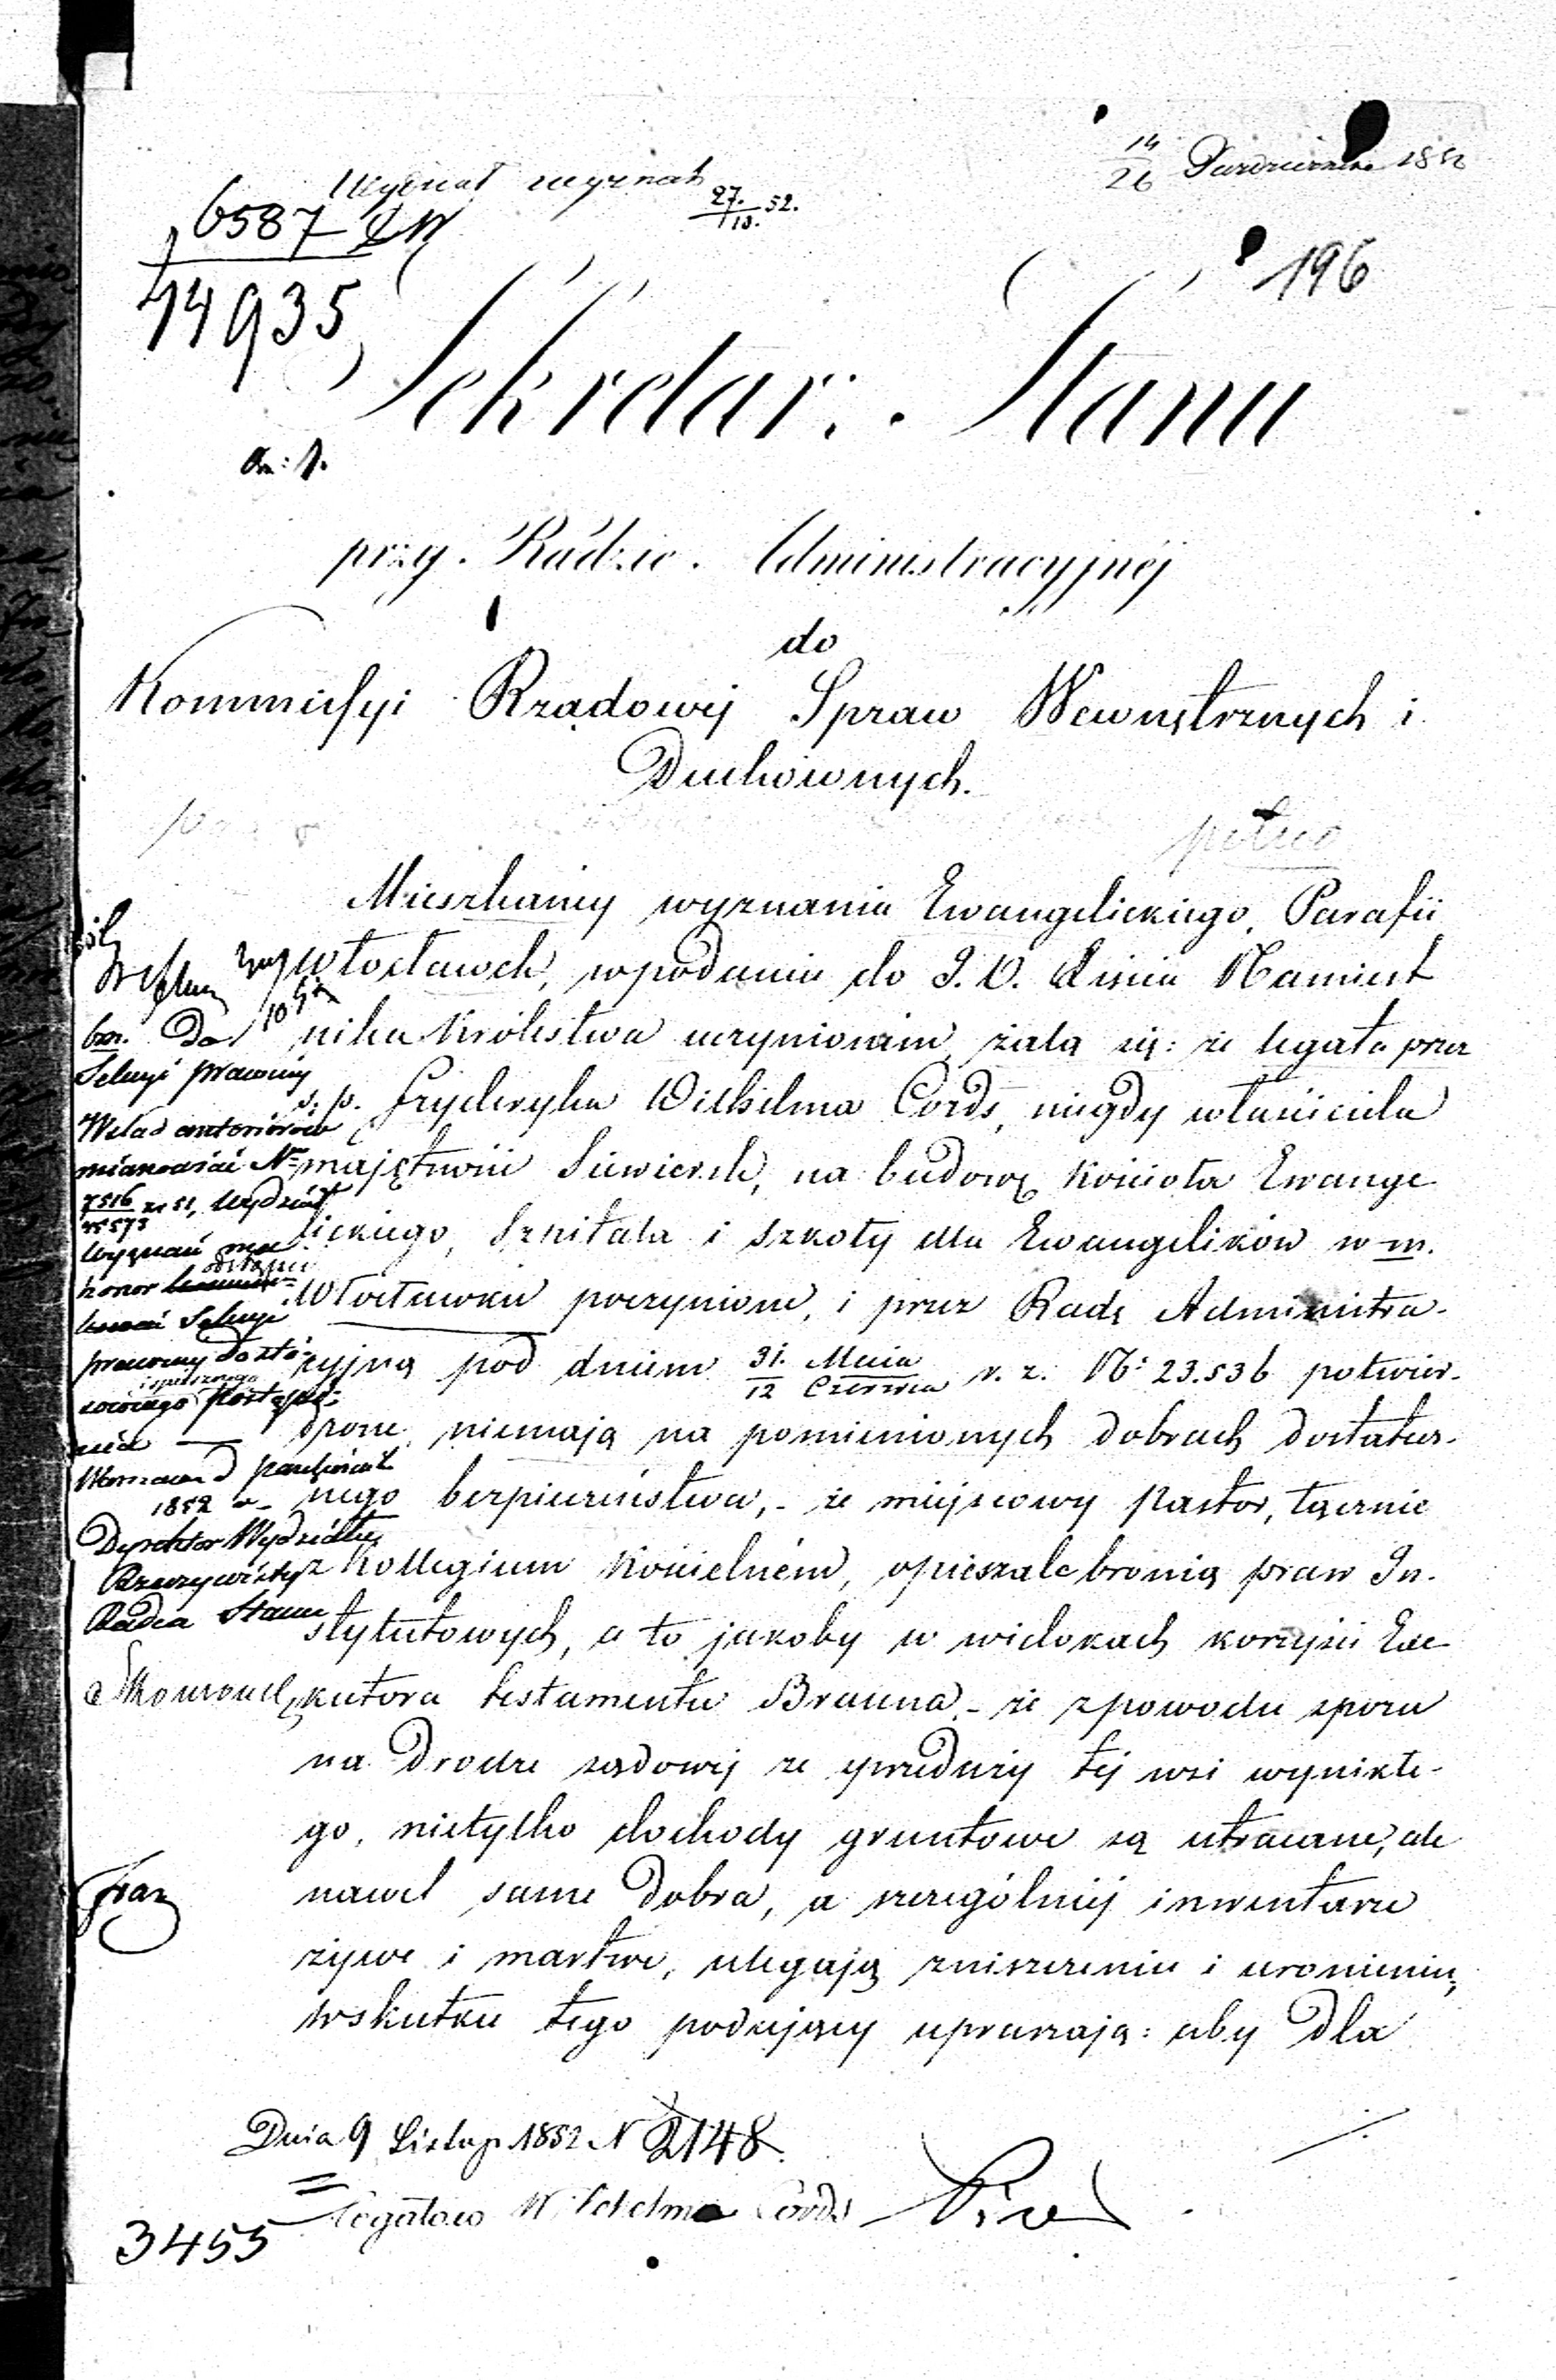 14/26 Października 1852
Wydział wyznań 27./10. 52.
6587
14935
196
Sekretarz Stanu
przy Radzie Administracyjnéj
do
Kommissyi Rządowéj Spraw Wewnętrznych i
Duchownych.
pilno
Mieszkańcy wyznania Ewangelickiego, Parafii
Włocławek, w podaniu do J. O. Xięcia Namiest
nika Królestwa uczynioném, żalą się: że legata przez
ś. p. Frydryka Wilhelma Cords, niegdy właściciela
majętności Siewiersk, na budowę Kościoła Ewange
lickiego, Szpitala i szkoły dla Ewangelików w m.
Włocławku poczynione, i przez Radę Administra-
cyjną pod dniem 31. Maja/12 Czerwca r. z. No: 23.536 potwier-
dzone, niemają na pomienionych dobrach dostatecz-
nego bezpieczeństwa, - że miejscowy Pastor, łącznie
z Kollegium Kościelném, opieszale bronią praw In-
stytutowych, a to jakoby w widokach korzyści Exe
kutora testamentu Brauna, - że z powodu sporu
na drodze sądowéj ze sprzedaży téj wsi wynikłe-
go, nietylko dochody gruntowe są utracane, ale
nawet same dobra, a szczególniéj inwentarze
żywe i martwe, ulegają zniszczeniu i uronieniu,
wskutku tego podający upraszają: aby dla
do
Sekcyi prawnéj
W ślad anteriorów
mianowicie No
7516/15573 z 51, Wydział
Wyznań ma
honor odstąpić
Sekcyi
prawnéj do stó-
sownego i spiesznego postąpie-
nia —
Warszawa d Paździer.
1852 r.
Dyrektor Wydziału
Rzeczywisty
Radca Stanu
Dnia 9 Listop. 1852 N 2148.
Legatów Wilhelma Cords
3455